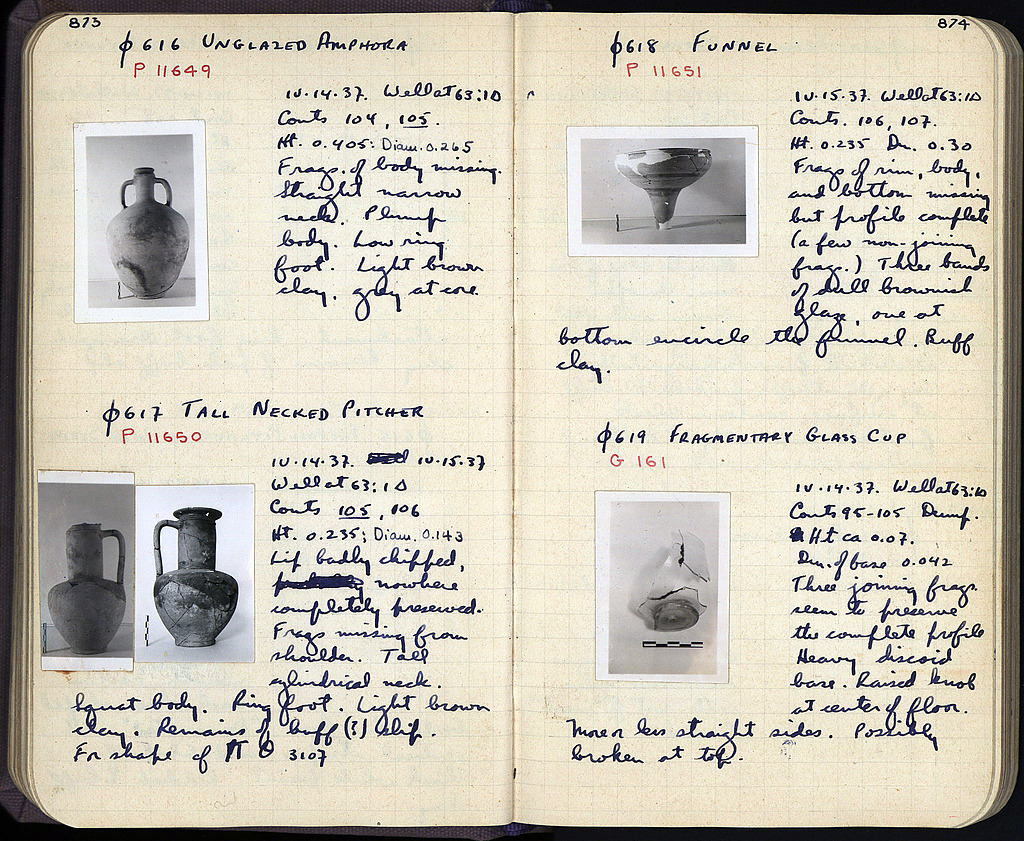 873
φ616 UNGLAZED AMPHORA
P 11649
IV.14.37. Well at 63:ΙΔ
Conts 104, 105.
Ht. 0.405; Diam. 0.265
Frags. of body missing.
Straight narrow
neck. Plump
body. Low ring
foot. Light brown
clay, gray at core
φ617 TALL NECKED PITCHER
P 11650
IV.14.37. IV.15.37
Well at 63:ΙΔ
Conts 105, 106
Ht. 0.235; Diam. 0.143
Lip badly chipped,
nowhere
completely preserved.
Frags missing from
shoulder. Tall
cylindrical neck.
Squat body. Ring foot. Light brown
clay. Remains of buff (?) slip.
For shape cf Π Θ 3107
874
φ618 FUNNEL
P 11651
IV.15.37. Well at 63:ΙΔ
Conts. 106, 107.
Ht. 0.235 Dm. 0.30
Frags of rim, body,
and bottom missing
but profile complete
(a few non-joining
frags.) Three bands
of dull brownish
glaze, one at
bottom encircle the funnel. Buff
clay.
φ619 FRAGMENTARY GLASS CUP
G 161
IV.14.37. Well at 63:ΙΔ
Conts 95-105 Dump.
Ht ca 0.07.
Dm. of base 0.042
Three joining frags.
seem to preserve
the complete profile
Heavy discoid
base. Raised knob
at center of floor.
More or less straight sides. Possibly
broken at top.